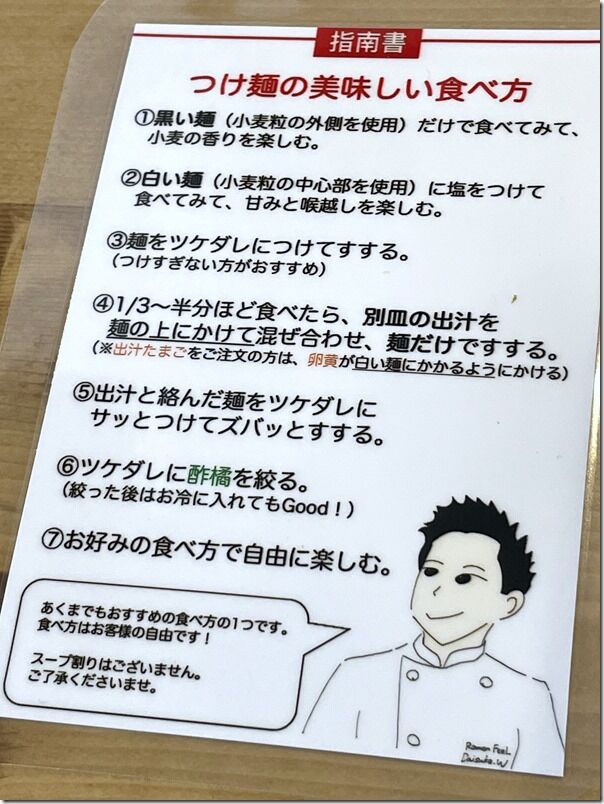 指南書
つけ麺の美味しい食べ方
①黒い麺（小麦粒の外側を使用）だけで食べてみて、
小麦の香りを楽しむ。
②白い麺（小麦粒の中心部を使用）に塩をつけて
食べてみて、甘みと喉越しを楽しむ。
③麺をツケダレにつけてすする。
（つけすぎない方がおすすめ）
④1/3〜半分ほど食べたら、別皿の出汁を
麺の上にかけて混ぜ合わせ、麺だけですする。
（※出汁たまごをご注文の方は、卵黄が白い麺にかかるようにかける）
⑤出汁と絡んだ麺をツケダレに
サッとつけてズバッとすする。
⑥ツケダレに酢橘を絞る。
（絞った後はお冷に入れてもGood！）
⑦お好みの食べ方で自由に楽しむ。
あくまでもおすすめの食べ方の1つです。
食べ方はお客様の自由です！
スープ割りはございません。
ご了承くださいませ。
Ramen FeeL
Daisuke.W